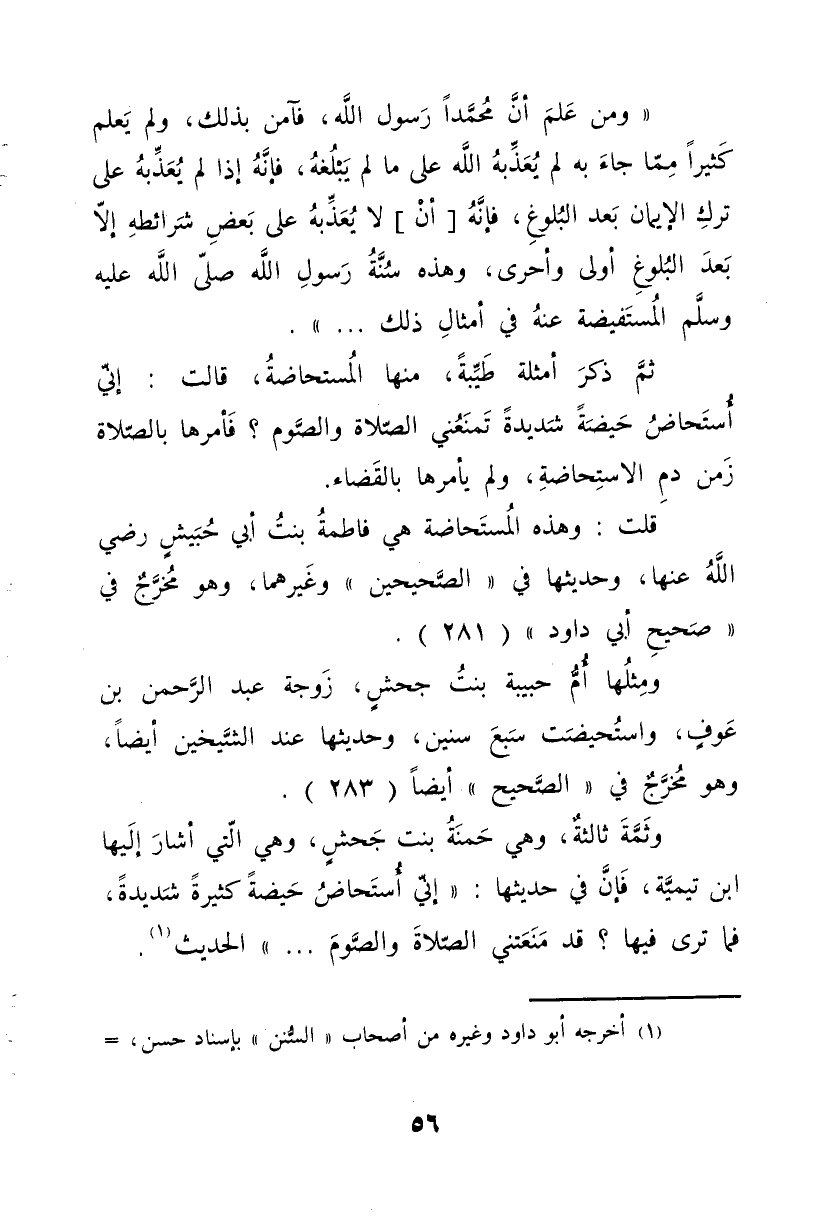 « ومن عَلمَ أنَّ مُحمَّداً رَسول اللَّه، فآمن بذلك، ولم يَعلم
كَثيراً مِمّا جاءَ به لم يُعَذِّبهُ اللَّه على ما لم يَبْلُغهُ، فإنَّهُ إذا لم يُعَذِّبهُ على
تركِ الإيمان بَعد البُلوغِ، فإنَّهُ [ أنْ ] لا يُعَذِّبهُ على بَعضِ شَرائطهِ إلّا
بَعدَ البُلوغِ أولى وأحرى، وهذه سُنَّةُ رَسولِ اللَّه صلّى اللَّه عليه
وسلَّم المُستَفيضة عنهُ في أمثالِ ذلك ... » .
ثمَّ ذكرَ أمثلة طَيِّبةً، منها المُستحاضةُ، قالت : إنّي
أُستَحاضُ حَيضَةً شَديدةً تَمنَعُني الصّلاة والصَّوم ؟ فَأمرها بالصّلاة
زَمن دمِ الاستِحاضةِ، ولم يأمرها بالقَضاء.
قلت : وهذه المُستَحاضة هي فاطمةُ بنتُ أبي حُبَيشٍ رضي
اللَّهُ عنها، وحديثها في « الصَّحيحين » وغَيرهما، وهو مُخرَّجٌ في
« صَحيحِ أبي داود » ( ٢٨١ ) .
ومِثلُها أُمُّ حبيبة بنتُ جحشٍ، زَوجة عبد الرَّحمن بن
عَوفٍ، واستُحيضَت سَبعَ سنين، وحديثها عند الشَّيخين أيضاً،
وهو مُخرَّجٌ في « الصَّحيح » أيضاً ( ٢٨٣ ) .
وثَمَّةَ ثالثةٌ، وهي حَمنَةُ بنت جَحشٍ، وهي الّتي أشارَ إلَيها
ابن تيميَّة، فَإنَّ في حديثها : « إنّي أُستَحاضُ حَيضةً كثيرةً شَديدةً،
فما ترى فيها ؟ قد مَنَعَتني الصّلاةَ والصَّومَ ... » الحديث(١).
(١) أخرجه أبو داود وغيره من أصحاب « السُّنن » بإسناد حسن، =
٥٦